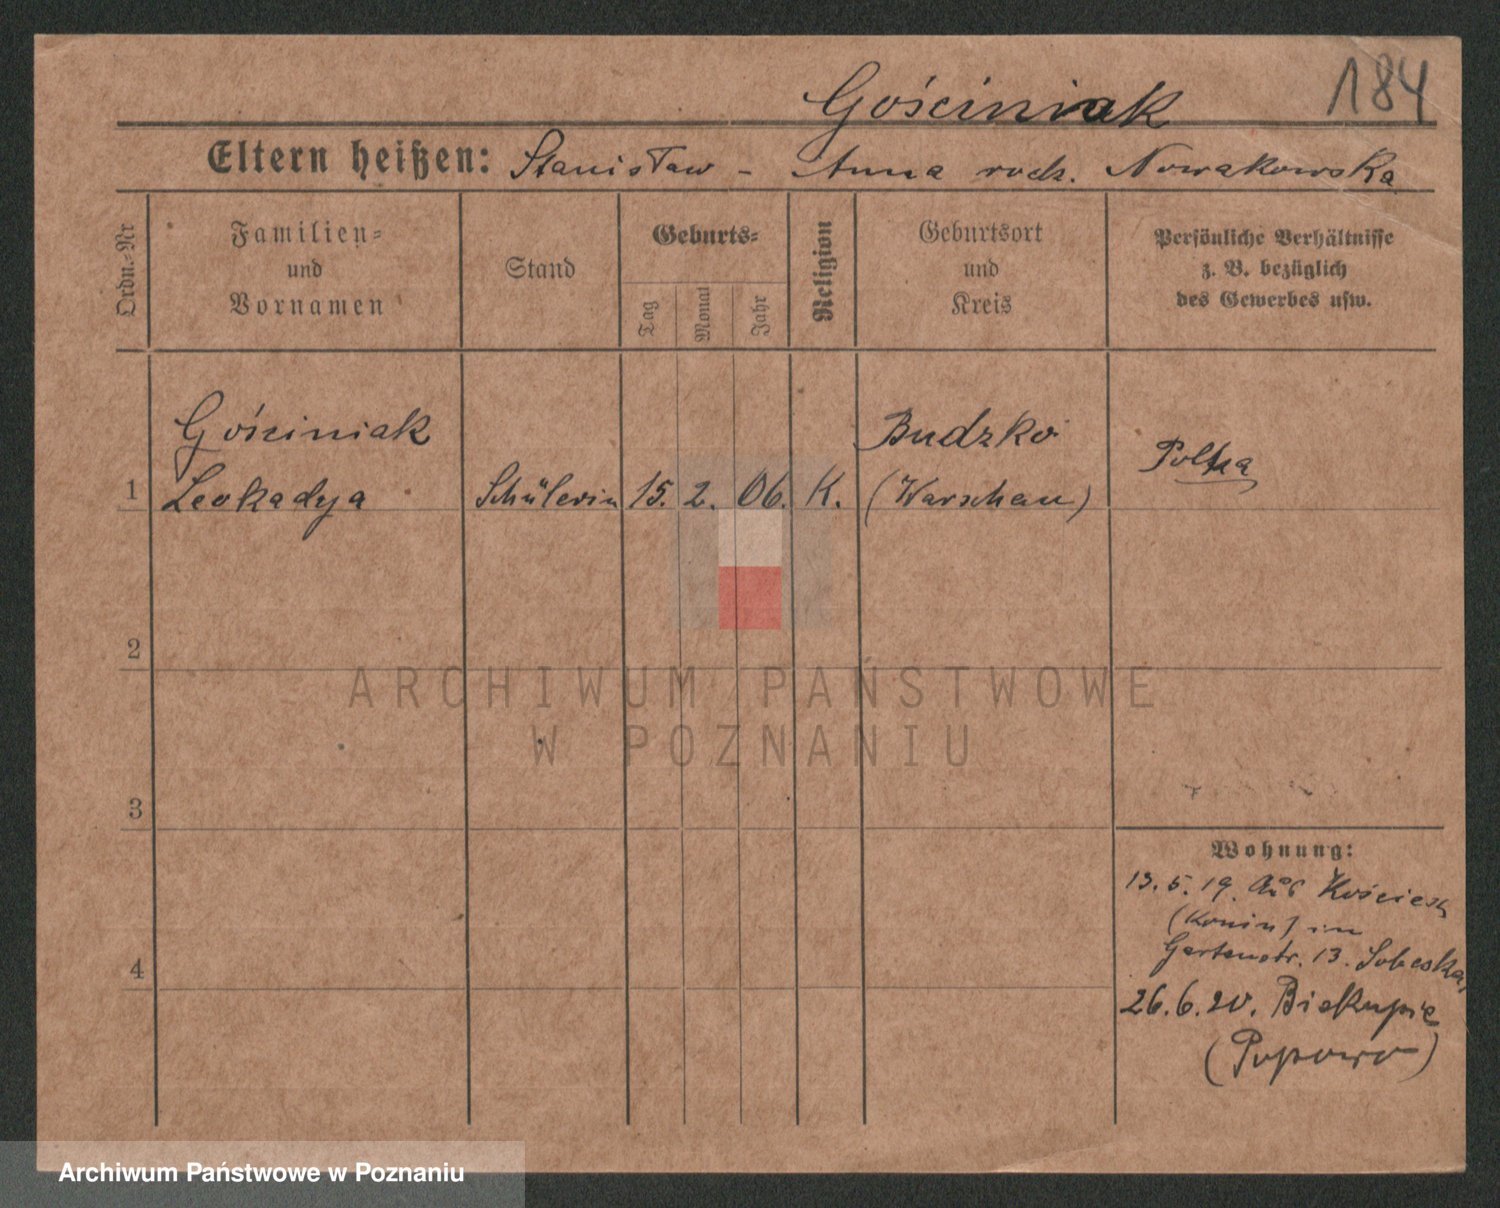 184
Gościniak
Eltern heißen: Stanisław - Anna rodz. Nowakowska
Ordn.-Nr
Familien-
und
Vornamen
Stand
Geburts-
Tag
Monat
Jahr
Religion
Geburtsort
und
Kreis
Persönliche Verhältnisse
z. B. bezüglich
des Gewerbes usw.
Gościniak
Budzko
1 Leokadya Schülerin 15. 2. 06. K. (Warschau)
Polka
2
ARCHIWUM PAŃSTWOWE
W POZNANIU
3
Wohnung:
13. 5. 19. aus
(Konin) in
4
Gartenstr. 13. Sobeska,
26.6.20. Biskupie
(Popowo)
Archiwum Państwowe w Poznaniu